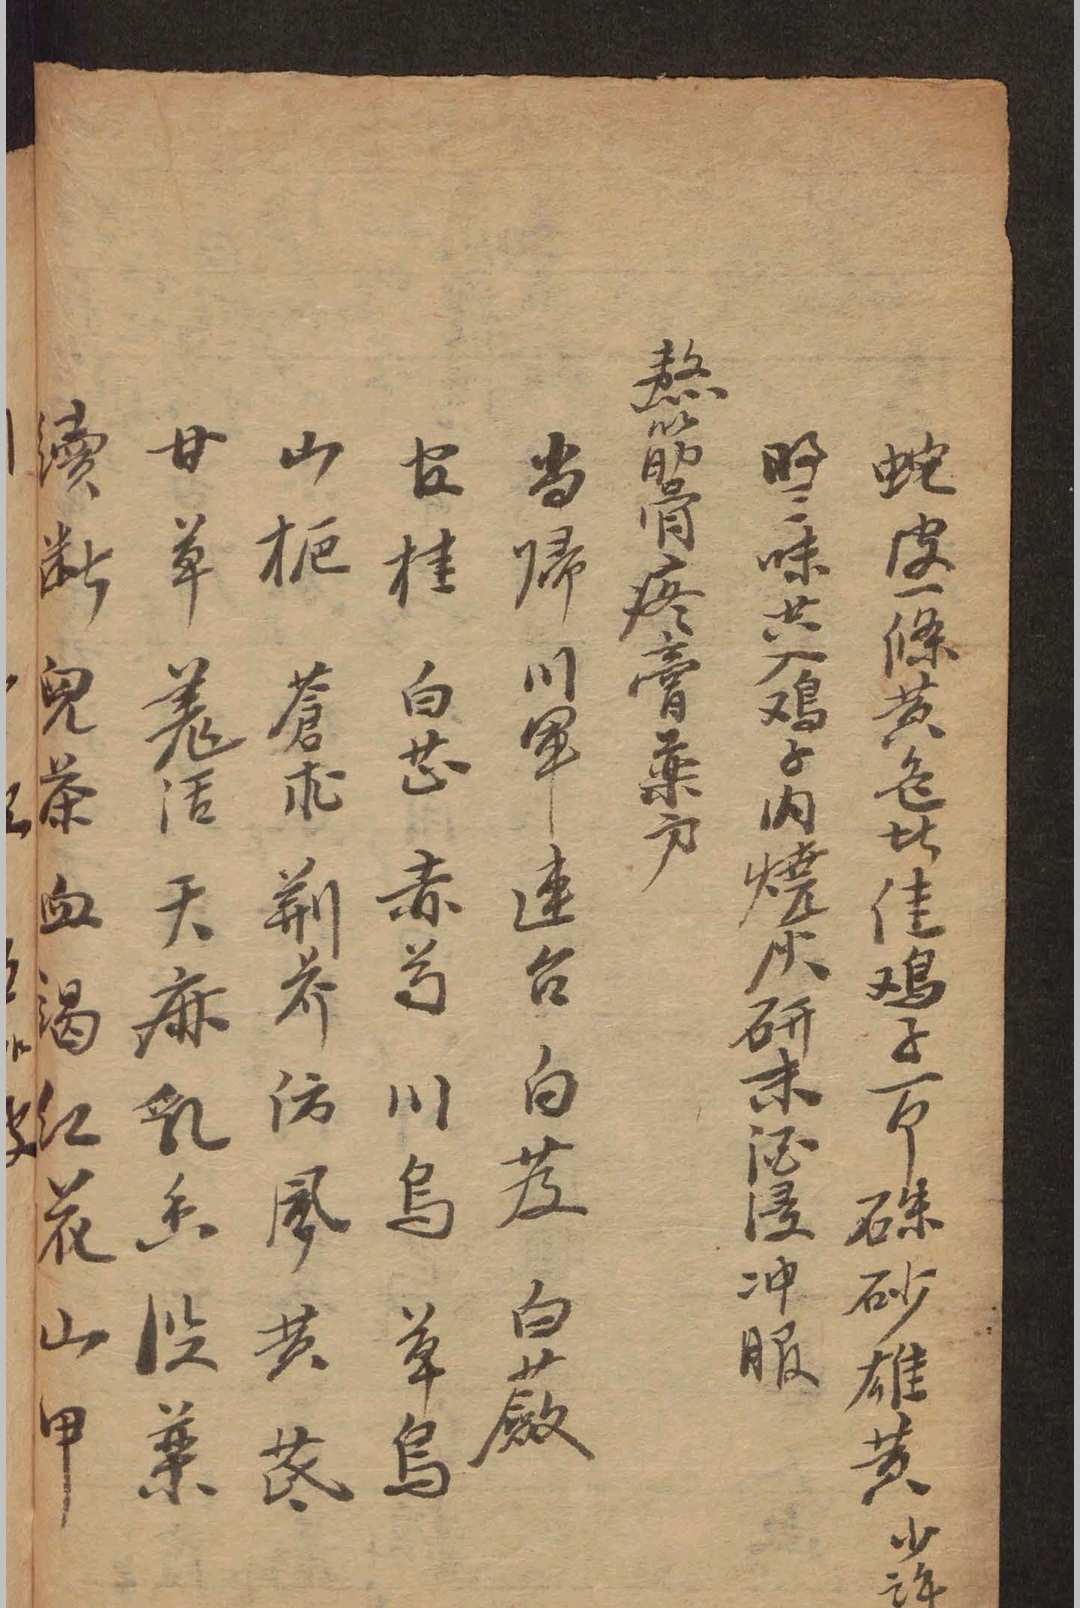 蛇皮一條黄色比佳鸡子一个硃砂雄黄少許
三味共入鸡子内燒灰研末酒浸冲服
熬筋骨疼膏藥方
当歸 川軍 連召 白芨 白蔹
官桂 白芷 赤芍 川烏 草烏
山栀 蒼朮 荆芥 防風 黄芪
甘草 羌活 天麻 乳香 没藥
續断 兒茶 血竭 红花 山甲